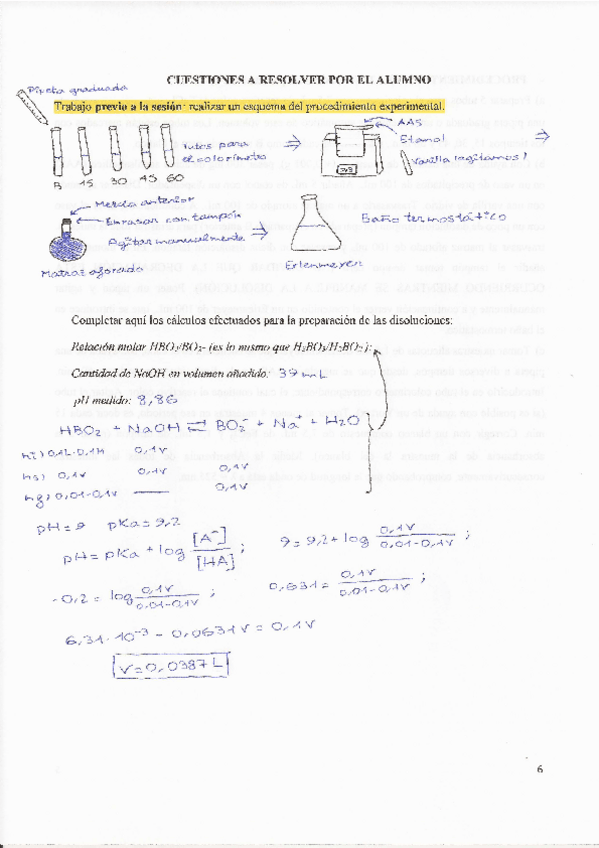 CUESTIONES A RESOLVER POR EL ALUMNO
Pipeta graduada
Trabajo previo a la sesión: realizar un esquema del procedimiento experimental.
AAS
Etanol
Varilla (agitamos)
tubos para
el colorímetro
B 15 30 45 60
Mezcla anterior
Enrasar con tampón
Agitar manualmente
Matraz aforado
Erlenmeyer
Baño termostático
Completar aquí los cálculos efectuados para la preparación de las disoluciones:
Relación molar HBO₂/BO₂- (es lo mismo que H₃BO₃/H₂BO₃⁻):
Cantidad de NaOH en volumen añadido: 39 mL
pH medido: 8,86
HBO₂ + NaOH ⇄ BO₂⁻ + Na⁺ + H₂O
ni) 0,1L·0,1M 0,1V
0,1V 0,1V 0,1V
0,01-0,1V —— 0,1V
pH=9 pKa=9,2
pH=pKa + log [A⁻]/[HA] ; 9=9,2+log 0,1V/0,01-0,1V ;
-0,2 = log 0,1V/0,01-0,1V ; 0,631= 0,1V/0,01-0,1V ;
6,31·10⁻³ - 0,0631V = 0,1V
V=0,0387L
6